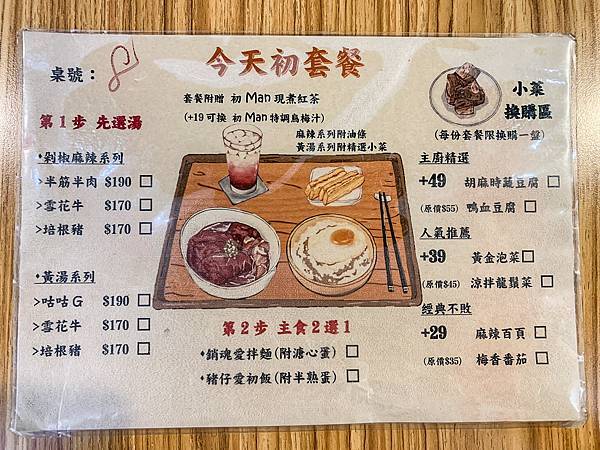 今天初套餐
桌號：
套餐附贈 初 Man 現煮紅茶
(+19 可換 初 Man 特調烏梅汁)
麻辣系列附油條
黃湯系列附精選小菜
第 1 步 先選湯
♦剁椒麻辣系列
>半筋半肉 $190 □
>雪花牛 $170 □
>培根豬 $170 □
♦黃湯系列
>咕咕 G $190 □
>雪花牛 $170 □
>培根豬 $170 □
第 2 步 主食 2 選 1
♦銷魂愛拌麵(附溏心蛋) □
♦豬仔愛初飯(附半熟蛋) □
小菜
換購區
(每份套餐限換購一盤)
主廚精選
+49 胡麻時蔬豆腐 □
(原價$55) 鴨血豆腐 □
人氣推薦
+39 黃金泡菜 □
(原價$45) 涼拌龍鬚菜 □
經典不敗
+29 麻辣百頁 □
(原價$35) 梅香番茄 □